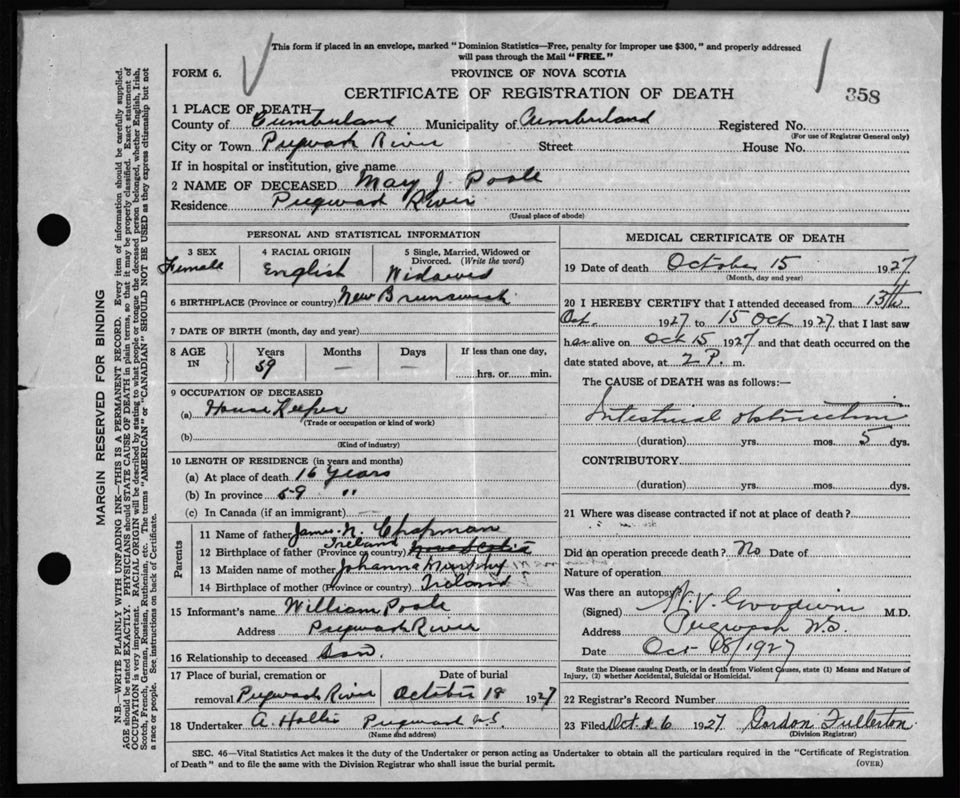 This form if placed in an envelope, marked "Dominion Statistics—Free, penalty for improper use $300," and properly addressed
will pass through the Mail "FREE."
FORM 6.
PROVINCE OF NOVA SCOTIA
CERTIFICATE OF REGISTRATION OF DEATH
358
1 PLACE OF DEATH
County of Cumberland Municipality of Cumberland Registered No.
(For use of Registrar General only)
City or Town Pugwash River Street House No.
If in hospital or institution, give name
2 NAME OF DECEASED May J. Poole
Residence Pugwash River
(Usual place of abode)
PERSONAL AND STATISTICAL INFORMATION
3 SEX 4 RACIAL ORIGIN 5 Single, Married, Widowed or
Divorced. (Write the word)
Female English Widowed
6 BIRTHPLACE (Province or country) New Brunswick
7 DATE OF BIRTH (month, day and year)
8 AGE IN Years Months Days If less than one day,
59 — — hrs. or min.
9 OCCUPATION OF DECEASED
(a) House Keeper
(Trade or occupation or kind of work)
(b)
(Kind of industry)
10 LENGTH OF RESIDENCE (in years and months)
(a) At place of death 16 years
(b) In province 59 "
(c) In Canada (if an immigrant)
Parents
11 Name of father James N. Chapman
12 Birthplace of father (Province or country) Ireland
13 Maiden name of mother Johanna Murphy
14 Birthplace of mother (Province or country) Ireland
15 Informant's name William Poole
Address Pugwash River
16 Relationship to deceased Son.
17 Place of burial, cremation or Date of burial
removal Pugwash River October 18 1927
18 Undertaker A. Hollis Pugwash N.S.
(Name and address)
MEDICAL CERTIFICATE OF DEATH
19 Date of death October 15 1927
(Month, day and year)
20 I HEREBY CERTIFY that I attended deceased from 13th
Oct. 1927 to 15 Oct 1927 that I last saw
her alive on Oct 15 1927 and that death occurred on the
date stated above, at 2 P. m.
The CAUSE of DEATH was as follows:—
Intestinal obstruction
(duration) yrs. mos. 5 dys.
CONTRIBUTORY
(duration) yrs. mos. dys.
21 Where was disease contracted if not at place of death?
Did an operation precede death? No Date of
Nature of operation
Was there an autopsy?
(Signed) Goodwin M.D.
Address Pugwash N.S.
Date Oct 18/1927
State the Disease causing Death, or in death from Violent Causes, state (1) Means and Nature of
Injury, (2) whether Accidental, Suicidal or Homicidal.
22 Registrar's Record Number
23 Filed Oct 26 1927 Gordon Fullerton
(Division Registrar)
SEC. 46—Vital Statistics Act makes it the duty of the Undertaker or person acting as Undertaker to obtain all the particulars required in the "Certificate of Registration
of Death" and to file the same with the Division Registrar who shall issue the burial permit. (OVER)
MARGIN RESERVED FOR BINDING
N.B.—WRITE PLAINLY WITH UNFADING INK—THIS IS A PERMANENT RECORD. Every item of information should be carefully supplied.
AGE should be stated EXACTLY. PHYSICIANS should STATE CAUSE OF DEATH in plain terms, so that it may be properly classified. Exact statement of
OCCUPATION is very important. RACIAL ORIGIN will be described by stating to what people or tongue the deceased person belonged, whether English, Irish,
Scotch, French, German, Russian, Ruthenian, etc. The terms "AMERICAN" or "CANADIAN" SHOULD NOT BE USED as they express citizenship but not
a race or people. See instructions on back of Certificate.